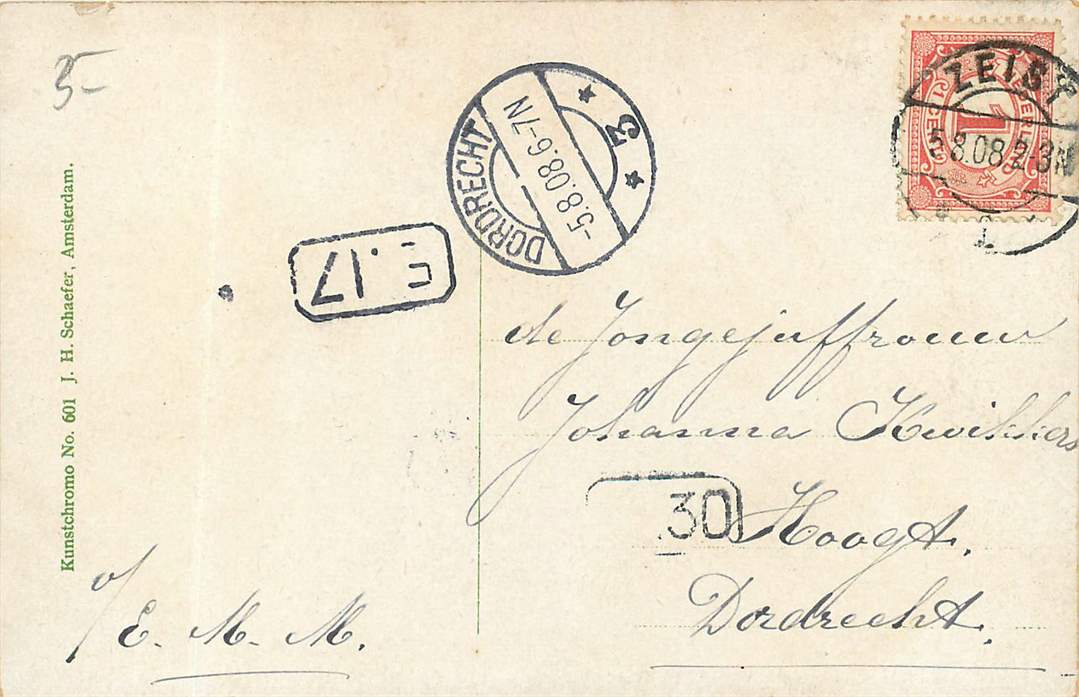 35-
Kunstchromo No. 601 J. H. Schaefer, Amsterdam.
DORDRECHT
-5.8.08.6-7N
* 3 *
ZEIST
5.8.08 2-3N
NEDERLAND
1
1 CENT
E.17
de Jongejuffrouw
Johanna Kwikkers
30
Hoogt.
Dordrecht.
v/
E. M. M.